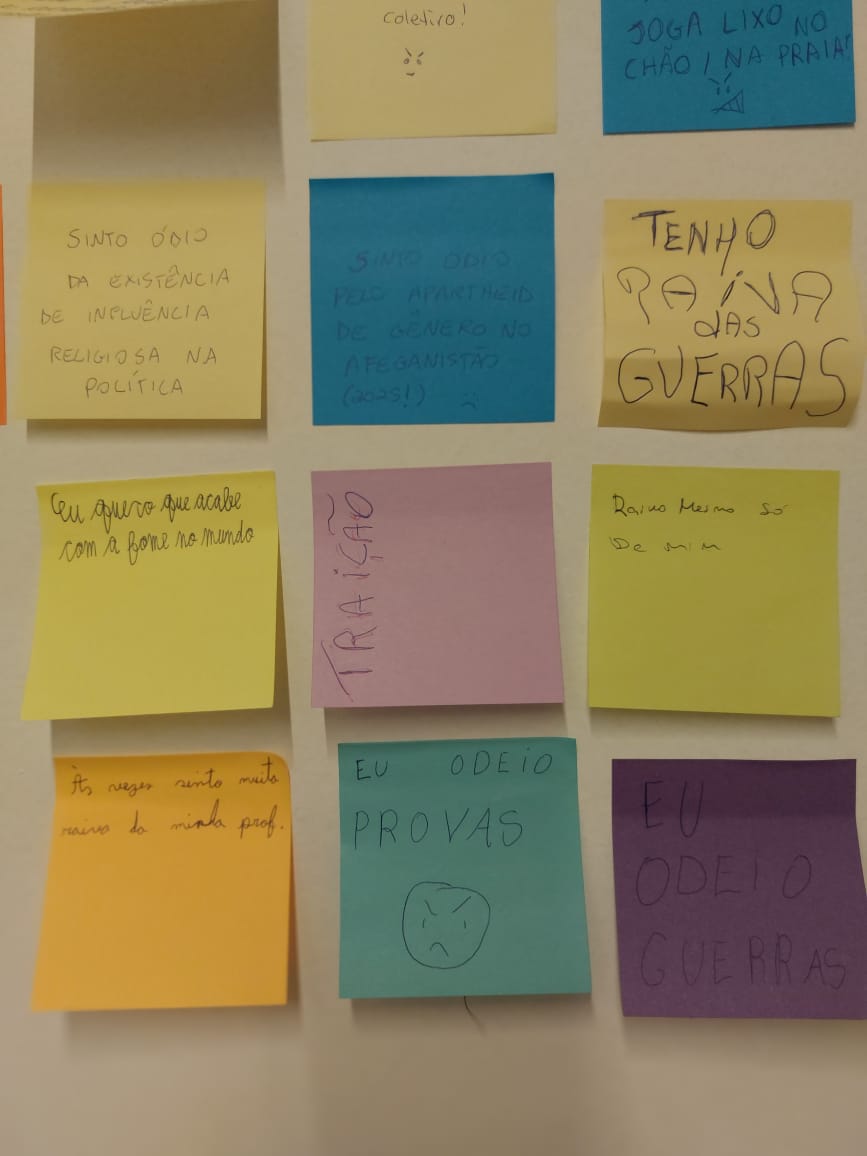 coletivo!
JOGA LIXO NO
CHÃO / NA PRAIA!
SINTO ÓDIO
DA EXISTÊNCIA
DE INFLUÊNCIA
RELIGIOSA NA
POLÍTICA
SINTO ÓDIO
PELO APARTHEID
DE GÊNERO NO
AFEGANISTÃO
(2025!)
TENHO
RAIVA
DAS
GUERRAS
Eu quero que acabe
com a fome no mundo
TRAIÇÃO
Raiva Mesmo só
De mim
Às vezes sinto muita
raiva da minha prof.
EU ODEIO
PROVAS
EU
ODEIO
GUERRAS